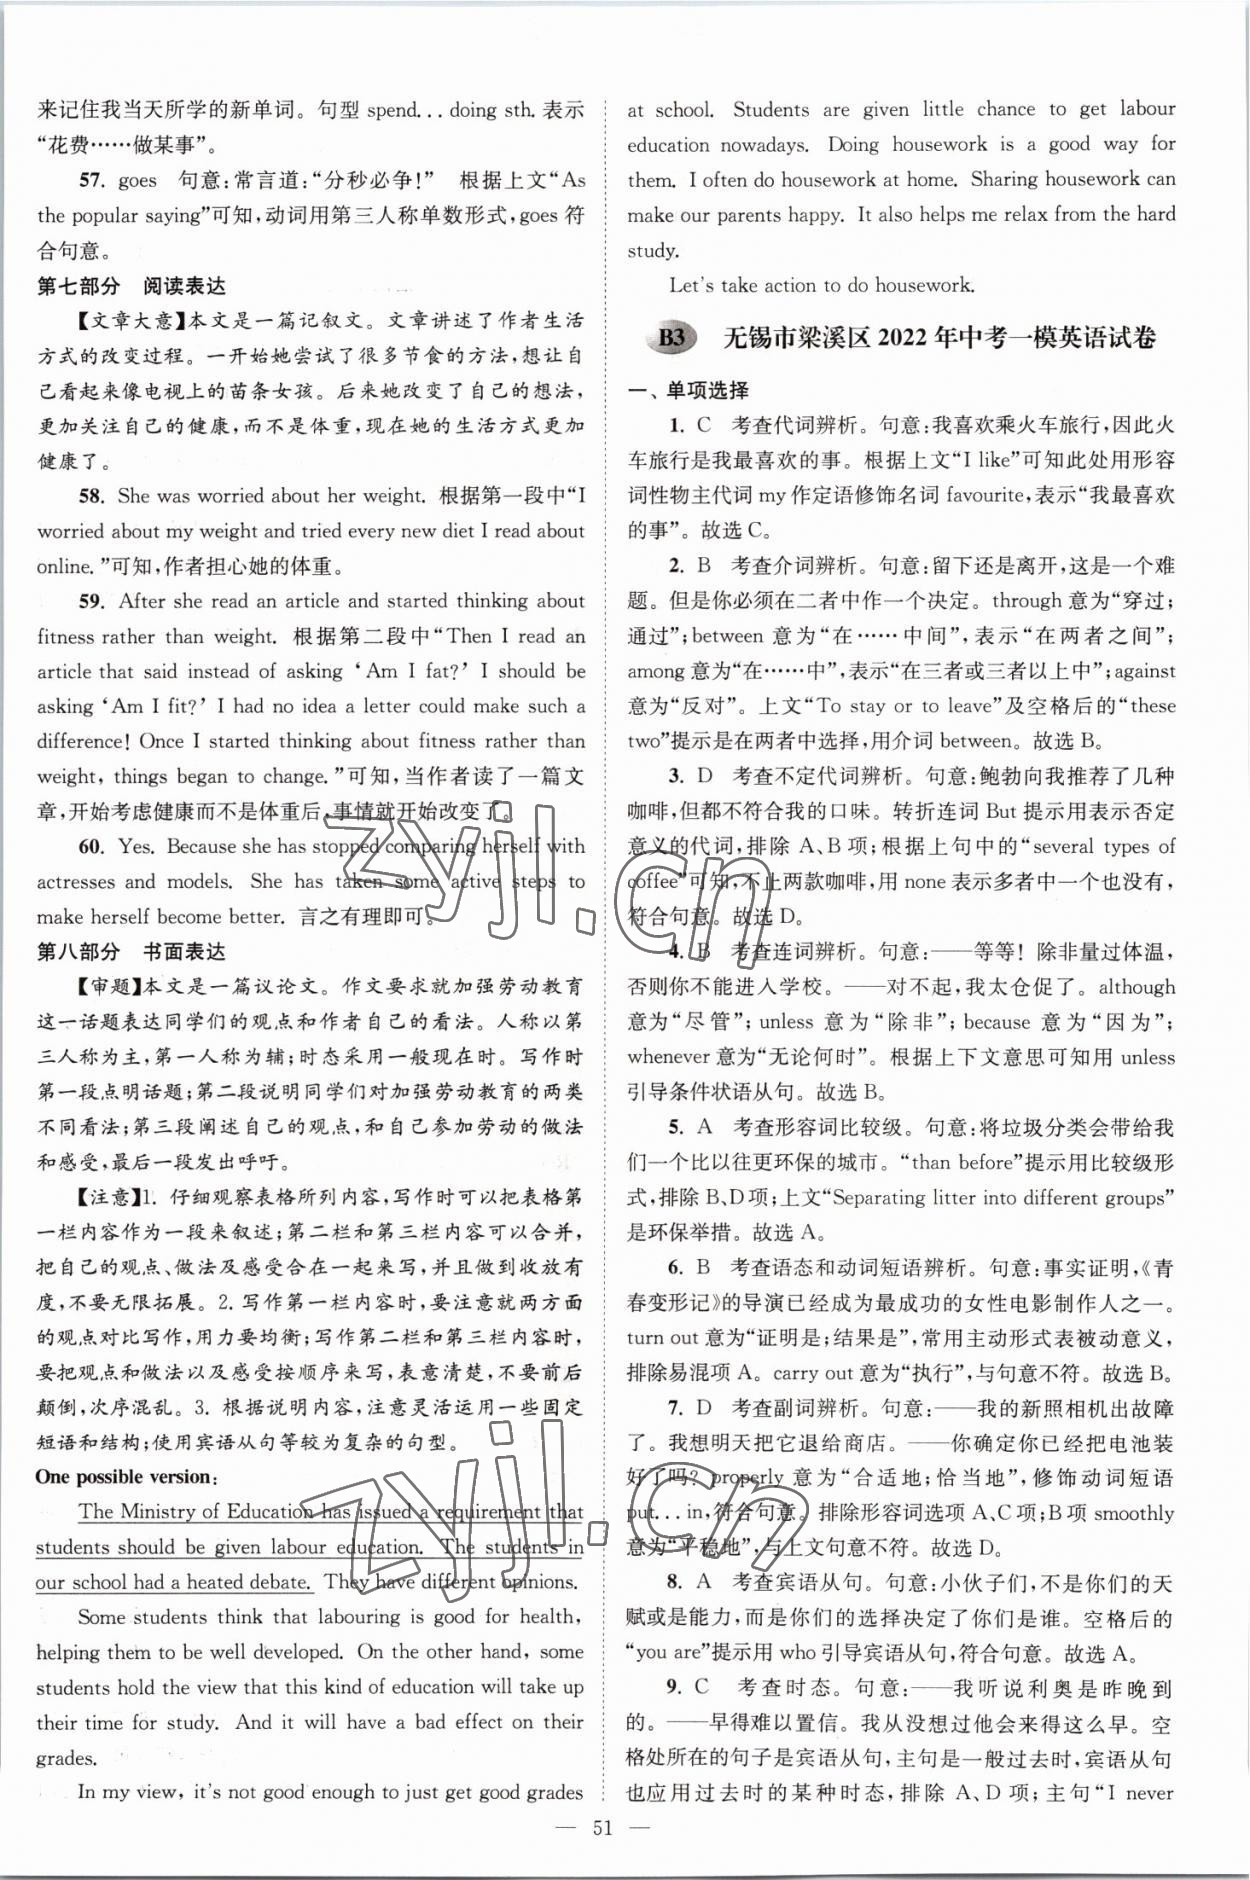 来记住我当天所学的新单词。句型 spend... doing sth. 表示
“花费……做某事”。
57. goes 句意:常言道:“分秒必争!” 根据上文“As
the popular saying”可知,动词用第三人称单数形式,goes 符
合句意。
第七部分 阅读表达
【文章大意】本文是一篇记叙文。文章讲述了作者生活
方式的改变过程。一开始她尝试了很多节食的方法,想让自
己看起来像电视上的苗条女孩。后来她改变了自己的想法,
更加关注自己的健康,而不是体重,现在她的生活方式更加
健康了。
58. She was worried about her weight. 根据第一段中“I
worried about my weight and tried every new diet I read about
online.”可知,作者担心她的体重。
59. After she read an article and started thinking about
fitness rather than weight. 根据第二段中“Then I read an
article that said instead of asking ‘Am I fat?’ I should be
asking ‘Am I fit?’ I had no idea a letter could make such a
difference! Once I started thinking about fitness rather than
weight, things began to change.”可知,当作者读了一篇文
章,开始考虑健康而不是体重后,事情就开始改变了。
60. Yes. Because she has stopped comparing herself with
actresses and models. She has taken some active steps to
make herself become better. 言之有理即可。
第八部分 书面表达
【审题】本文是一篇议论文。作文要求就加强劳动教育
这一话题表达同学们的观点和作者自己的看法。人称以第
三人称为主,第一人称为辅;时态采用一般现在时。写作时
第一段点明话题;第二段说明同学们对加强劳动教育的两类
不同看法;第三段阐述自己的观点,和自己参加劳动的做法
和感受,最后一段发出呼吁。
【注意】1. 仔细观察表格所列内容,写作时可以把表格第
一栏内容作为一段来叙述;第二栏和第三栏内容可以合并,
把自己的观点、做法及感受合在一起来写,并且做到收放有
度,不要无限拓展。2. 写作第一栏内容时,要注意就两方面
的观点对比写作,用力要均衡;写作第二栏和第三栏内容时,
要把观点和做法以及感受按顺序来写,表意清楚,不要前后
颠倒,次序混乱。3. 根据说明内容,注意灵活运用一些固定
短语和结构;使用宾语从句等较为复杂的句型。
One possible version:
The Ministry of Education has issued a requirement that
students should be given labour education. The students in
our school had a heated debate. They have different opinions.
Some students think that labouring is good for health,
helping them to be well developed. On the other hand, some
students hold the view that this kind of education will take up
their time for study. And it will have a bad effect on their
grades.
In my view, it's not good enough to just get good grades
at school. Students are given little chance to get labour
education nowadays. Doing housework is a good way for
them. I often do housework at home. Sharing housework can
make our parents happy. It also helps me relax from the hard
study.
Let's take action to do housework.
B3 无锡市梁溪区 2022 年中考一模英语试卷
一、单项选择
1. C 考查代词辨析。句意:我喜欢乘火车旅行,因此火
车旅行是我最喜欢的事。根据上文“I like”可知此处用形容
词性物主代词 my 作定语修饰名词 favourite,表示“我最喜欢
的事”。故选 C。
2. B 考查介词辨析。句意:留下还是离开,这是一个难
题。但是你必须在二者中作一个决定。through 意为“穿过;
通过”;between 意为“在……中间”,表示“在两者之间”;
among 意为“在……中”,表示“在三者或三者以上中”;against
意为“反对”。上文“To stay or to leave”及空格后的“these
two”提示是在两者中选择,用介词 between。故选 B。
3. D 考查不定代词辨析。句意:鲍勃向我推荐了几种
咖啡,但都不符合我的口味。转折连词 But 提示用表示否定
意义的代词,排除 A、B 项;根据上句中的“several types of
coffee”可知,不止两款咖啡,用 none 表示多者中一个也没有,
符合句意。故选 D。
4. B 考查连词辨析。句意:——等等!除非量过体温,
否则你不能进入学校。——对不起,我太仓促了。although
意为“尽管”;unless 意为“除非”;because 意为“因为”;
whenever 意为“无论何时”。根据上下文意思可知用 unless
引导条件状语从句。故选 B。
5. A 考查形容词比较级。句意:将垃圾分类会带给我
们一个比以往更环保的城市。“than before”提示用比较级形
式,排除 B、D 项;上文“Separating litter into different groups”
是环保举措。故选 A。
6. B 考查语态和动词短语辨析。句意:事实证明,《青
春变形记》的导演已经成为最成功的女性电影制作人之一。
turn out 意为“证明是;结果是”,常用主动形式表被动意义,
排除易混项 A。carry out 意为“执行”,与句意不符。故选 B。
7. D 考查副词辨析。句意:——我的新照相机出故障
了。我想明天把它退给商店。——你确定你已经把电池装
好了吗? properly 意为“合适地;恰当地”,修饰动词短语
put... in,符合句意。排除形容词选项 A、C 项;B 项 smoothly
意为“平稳地”,与上文句意不符。故选 D。
8. A 考查宾语从句。句意:小伙子们,不是你们的天
赋或是能力,而是你们的选择决定了你们是谁。空格后的
“you are”提示用 who 引导宾语从句,符合句意。故选 A。
9. C 考查时态。句意:——我听说利奥是昨晚到
的。——早得难以置信。我从没想过他会来得这么早。空
格处所在的句子是宾语从句,主句是一般过去时,宾语从句
也应用过去时的某种时态,排除 A、D 项;主句“I never
— 51 —
zyjl.cn
zyjl.cn